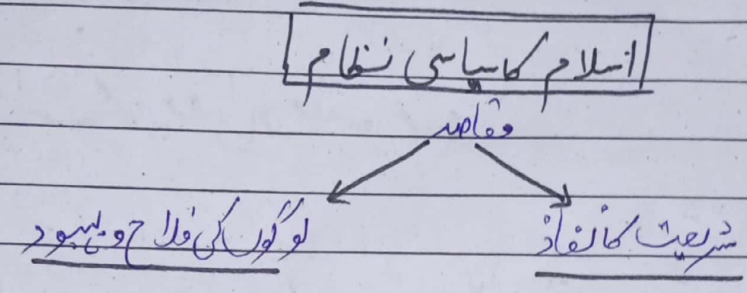 اسلام کا سیاسی نظام
مقاصد
شریعت کا نفاذ
لوگوں کی فلاح و بہبود